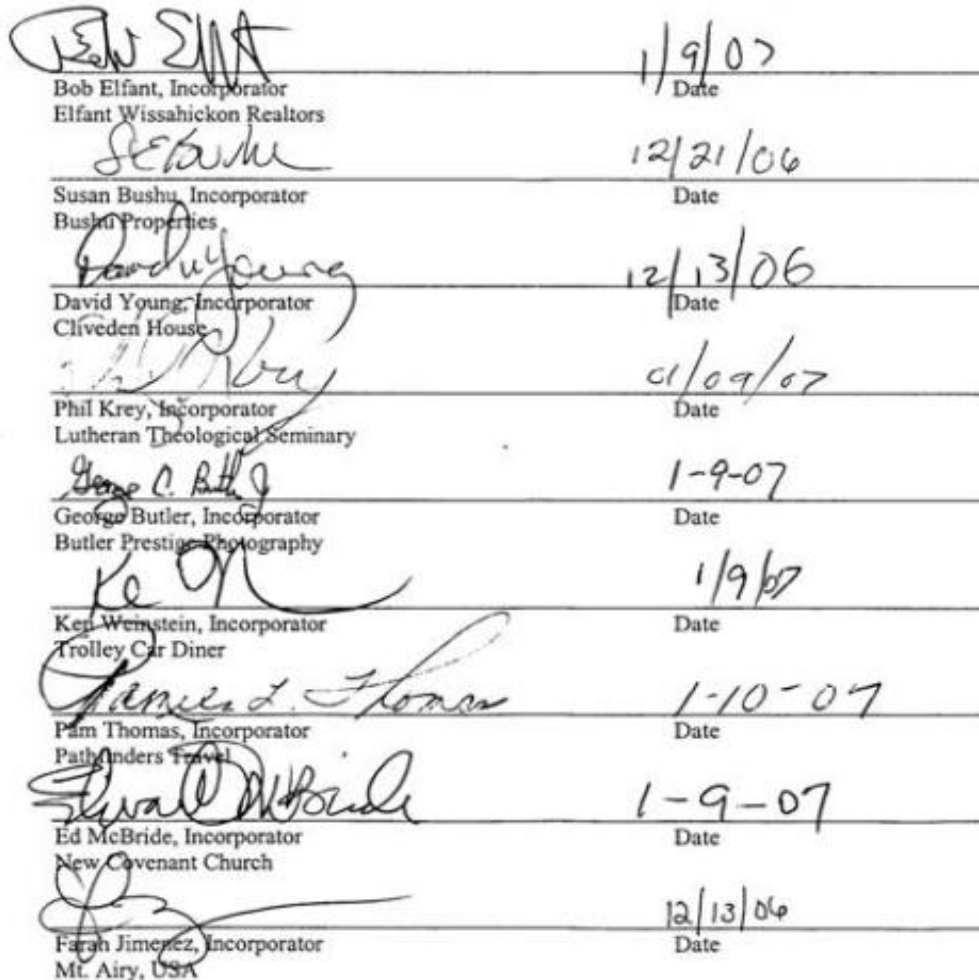 1/9/07
Bob Elfant, Incorporator Date
Elfant Wissahickon Realtors
SEBushu 12/21/06
Susan Bushu, Incorporator Date
Bushu Properties
David Young 12/13/06
David Young, Incorporator Date
Cliveden House
Krey 01/09/07
Phil Krey, Incorporator Date
Lutheran Theological Seminary
George C. Butler Jr 1-9-07
George Butler, Incorporator Date
Butler Prestige Photography
1/9/07
Ken Weinstein, Incorporator Date
Trolley Car Diner
Pamela L. Thomas 1-10-07
Pam Thomas, Incorporator Date
Pathfinders Travel
Edward McBride 1-9-07
Ed McBride, Incorporator Date
New Covenant Church
12/13/06
Farah Jimenez, Incorporator Date
Mt. Airy, USA